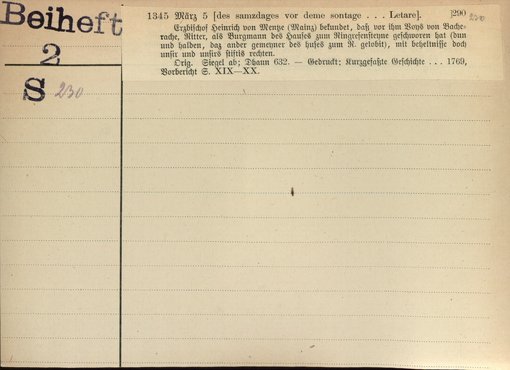 Beiheft
2
S 230
1345 März 5 [des samzdages vor deme sontage . . . Letare]. ]290 230
Erzbischof Heinrich von Mentze (Mainz) bekundet, daß vor ihm Boys von Bache-
rache, Ritter, als Burgmann des Hauses zum Ringresensteyne geschworen hat (dun
und halden, daz ander gemeyner des huses zum R. gelobit), mit beheltnisse doch
unsir und unsirs stiftis rechten.
Orig. Siegel ab; Dhaun 632. — Gedruckt: Kurzgefaßte Geschichte . . . 1769,
Vorbericht S. XIX—XX.